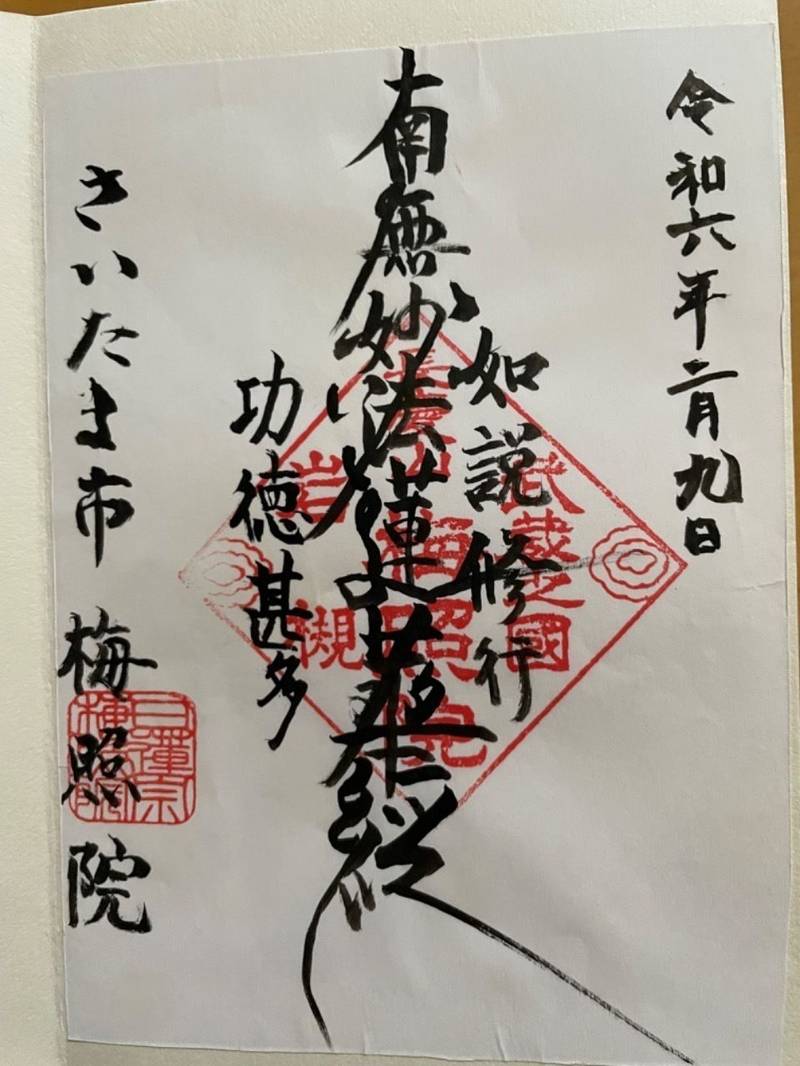 令和六年二月九日
如説修行
南無妙法蓮華経
功徳甚多
さいたま市 梅照院
武蔵之國
梅照院
岩槻
日蓮宗
梅照院